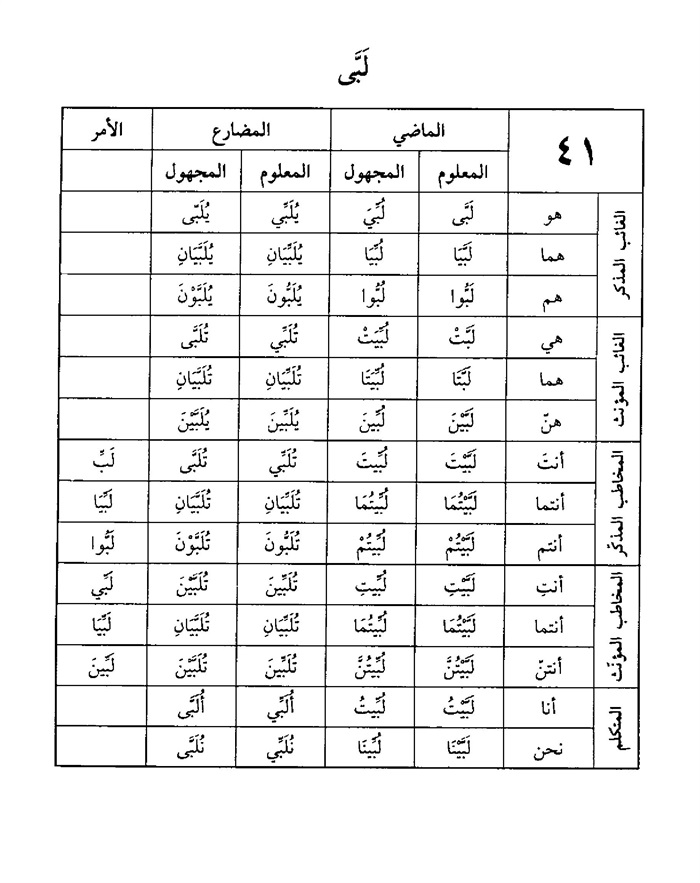 لَبَّى
٤١ الماضي المضارع الأمر
المعلوم المجهول المعلوم المجهول
الغائب المذكر
هو لَبَّى لُبِّيَ يُلَبِّي يُلَبَّى
هما لَبَّيَا لُبِّيَا يُلَبِّيَانِ يُلَبَّيَانِ
هم لَبَّوا لُبُّوا يُلَبُّونَ يُلَبَّوْنَ
الغائب المؤنث
هي لَبَّتْ لُبِّيَتْ تُلَبِّي تُلَبَّى
هما لَبَّتَا لُبِّيَتَا تُلَبِّيَانِ تُلَبَّيَانِ
هنّ لَبَّيْنَ لُبِّينَ يُلَبِّينَ يُلَبَّيْنَ
المخاطب المذكر
أنتَ لَبَّيْتَ لُبِّيتَ تُلَبِّي تُلَبَّى لَبِّ
أنتما لَبَّيْتُمَا لُبِّيتُمَا تُلَبِّيَانِ تُلَبَّيَانِ لَبِّيَا
أنتم لَبَّيْتُمْ لُبِّيتُمْ تُلَبُّونَ تُلَبَّوْنَ لَبُّوا
المخاطب المؤنّث
أنتِ لَبَّيْتِ لُبِّيتِ تُلَبِّينَ تُلَبَّيْنَ لَبِّي
أنتما لَبَّيْتُمَا لُبِّيتُمَا تُلَبِّيَانِ تُلَبَّيَانِ لَبِّيَا
أنتنّ لَبَّيْتُنَّ لُبِّيتُنَّ تُلَبِّينَ تُلَبَّيْنَ لَبِّينَ
المتكلم
أنا لَبَّيْتُ لُبِّيتُ أُلَبِّي أُلَبَّى
نحن لَبَّيْنَا لُبِّينَا نُلَبِّي نُلَبَّى